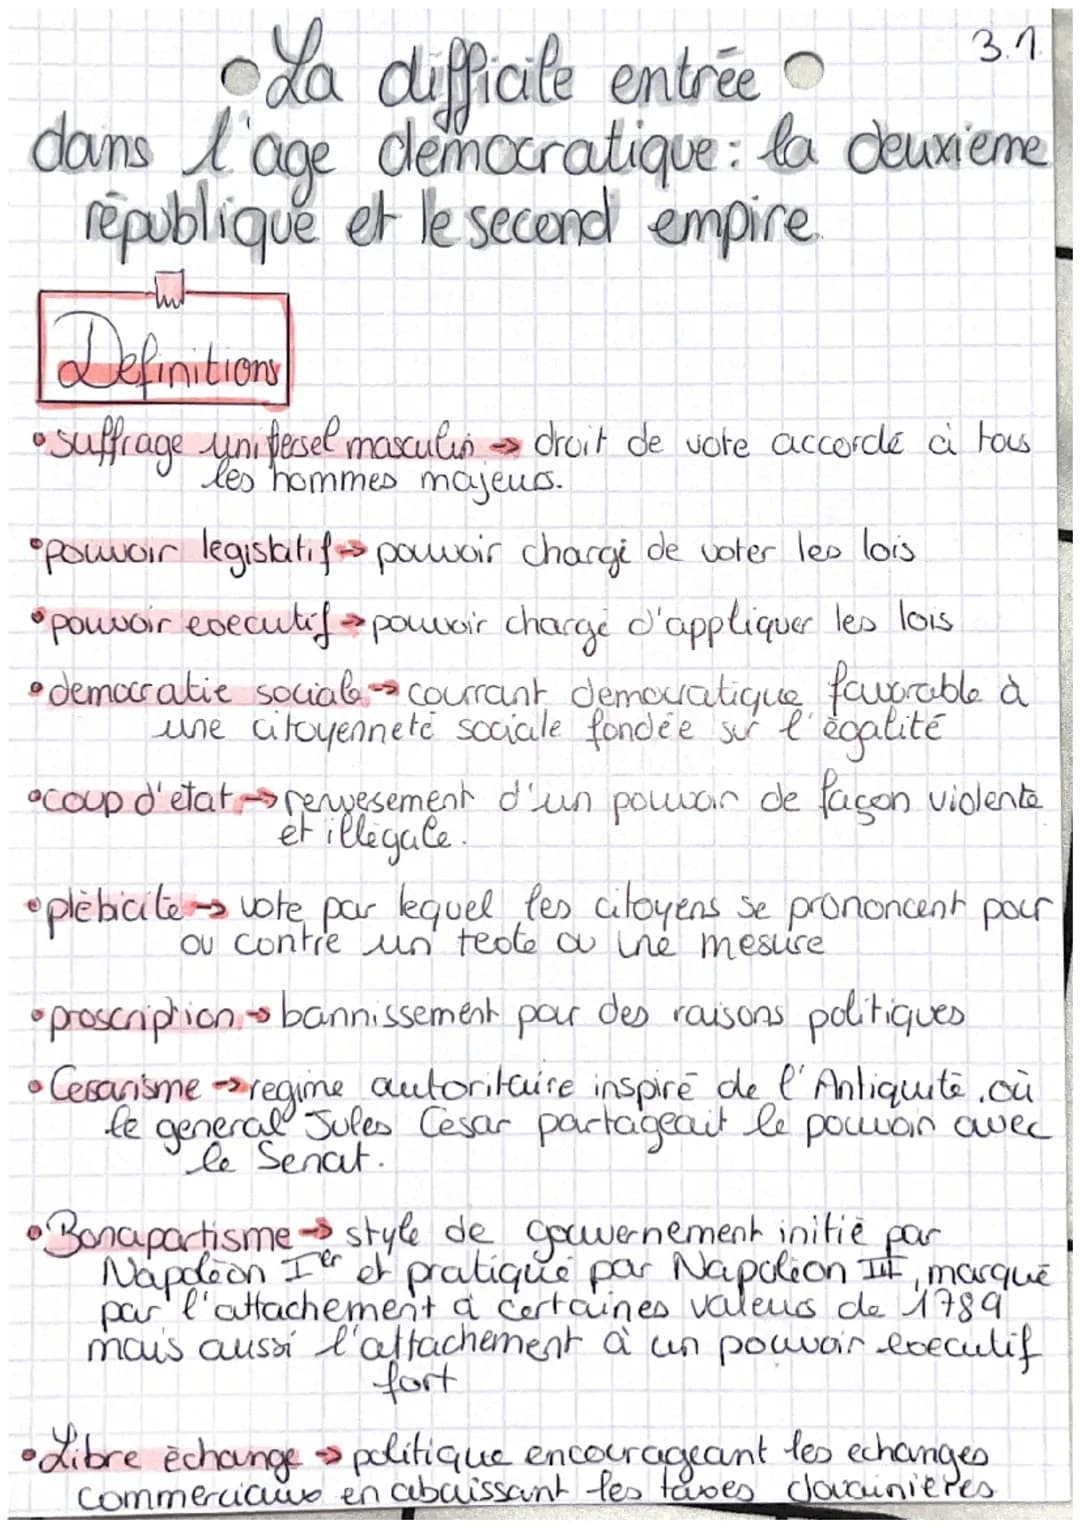 3.1.
La difficile entrée
dans l'age démocratique: la deuxieme
république et le second empire.
Definitions
• suffrage universel masculin → droit de vote accordé à tous
les hommes majeurs.
• pouvoir legislatif → pouvoir chargé de voter les lois
• pouvoir executif → pouvoir chargé d'appliquer les lois
• democratie sociale → courrant democratique favorable à
une citoyenneté sociale fondée sur l'égalité
• coup d'état → renversement d'un pouvoir de façon violente
et illégale.
• plébicite → vote par lequel les citoyens se prononcent pour
ou contre un texte ou une mesure
• proscription → bannissement pour des raisons politiques
• Cesarisme → regime autoritaire inspiré de l'Antiquité, où
le general Jules César partageait le pouvoir avec
le Senat.
• Bonapartisme → style de gouvernement initié par
Napoléon Ier et pratiqué par Napoléon III, marqué
par l'attachement à certaines valeurs de 1789
mais aussi l'attachement à un pouvoir executif
fort
• Libre échange → politique encourageant les echanges
commerciaux en abaissant les taxes douanières